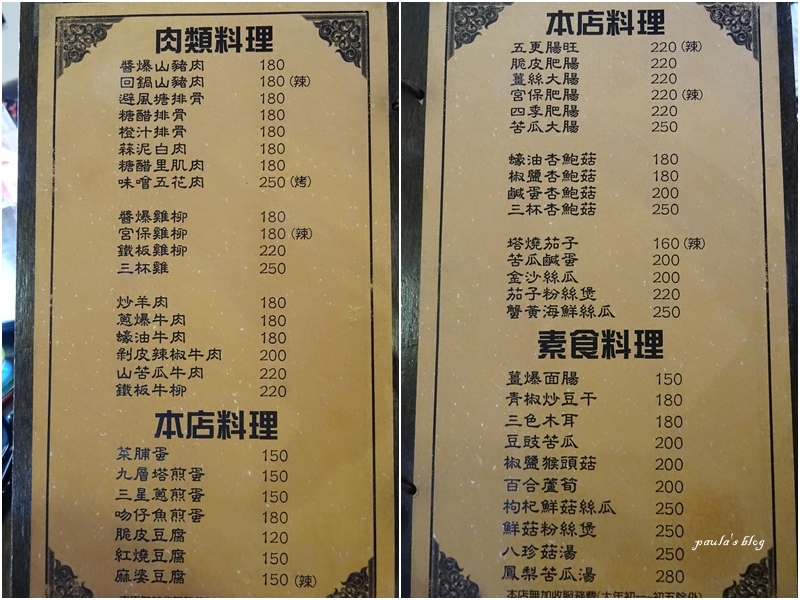 肉類料理
醬爆山豬肉 180
回鍋山豬肉 180 (辣)
避風塘排骨 180
糖醋排骨 180
橙汁排骨 180
蒜泥白肉 180
糖醋里肌肉 180
味噌五花肉 250 (烤)
醬爆雞柳 180
宮保雞柳 180 (辣)
鐵板雞柳 220
三杯雞 250
炒羊肉 180
蔥爆牛肉 180
蠔油牛肉 180
剝皮辣椒牛肉 200
山苦瓜牛肉 220
鐵板牛柳 220
本店料理
菜脯蛋 150
九層塔煎蛋 150
三星蔥煎蛋 150
吻仔魚煎蛋 180
脆皮豆腐 120
紅燒豆腐 150
麻婆豆腐 150 (辣)
本店料理
五更腸旺 220 (辣)
脆皮肥腸 220
薑絲大腸 220
宮保肥腸 220 (辣)
四季肥腸 220
苦瓜大腸 250
蠔油杏鮑菇 180
椒鹽杏鮑菇 180
鹹蛋杏鮑菇 200
三杯杏鮑菇 250
塔燒茄子 160 (辣)
苦瓜鹹蛋 200
金沙絲瓜 200
茄子粉絲煲 220
蟹黃海鮮絲瓜 250
素食料理
薑爆面腸 150
青椒炒豆干 180
三色木耳 180
豆豉苦瓜 200
椒鹽猴頭菇 200
百合蘆筍 200
枸杞鮮菇絲瓜 250
鮮菇粉絲煲 250
八珍菇湯 250
鳳梨苦瓜湯 280
本店無加收服務費(大年初一~初五除外)
paula's blog